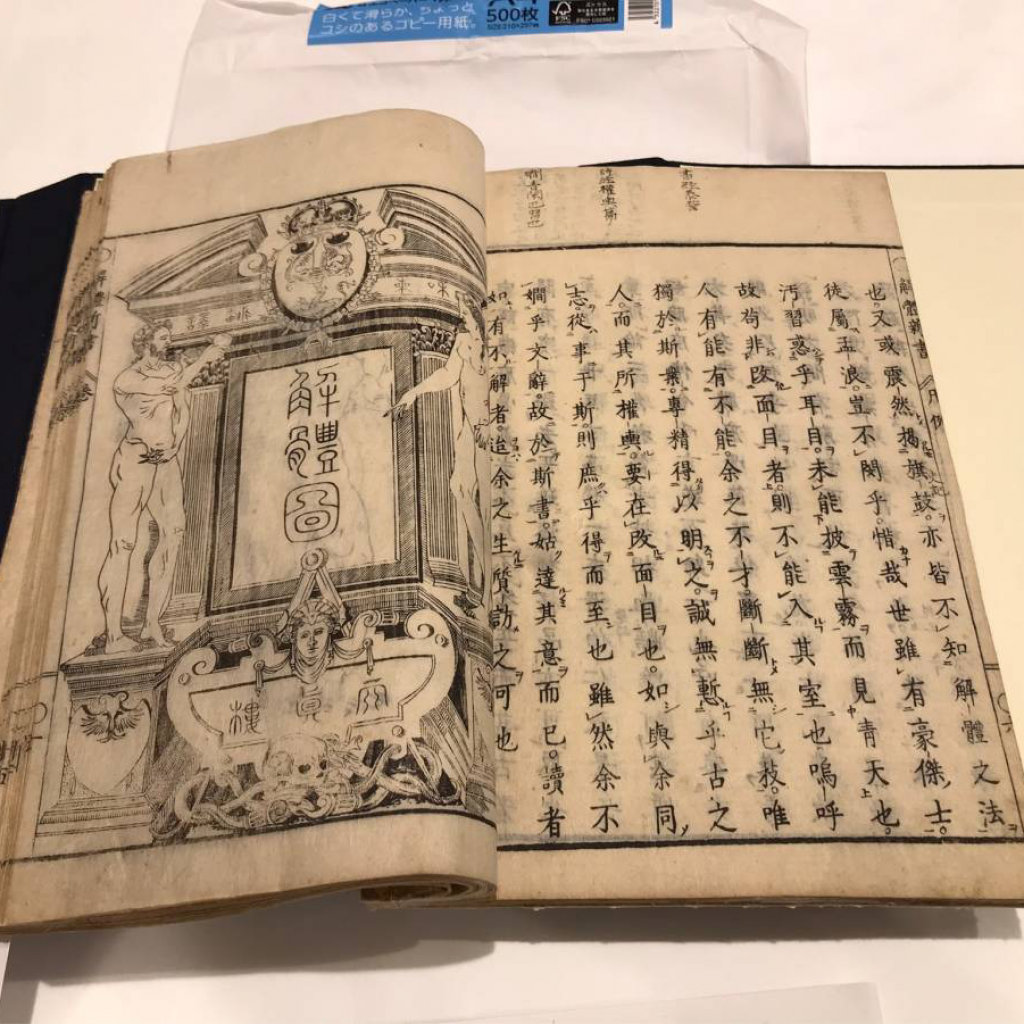 白くて滑らか、ちょっと
コシのあるコピー用紙。
500枚
FSC
解體新書 凡例
也。又或震然揭旗鼓。亦皆不知解體之法
徒屬孟浪。豈不閔乎。惜哉世雖有豪傑士。
汚習惑乎耳目。未能披雲霧而見青天也。
故苟非改面目者。則不能入其室也嗚呼
人有能有不能。余之不才。斷斷無它技。唯
獨於斯業。專精得以明之。誠無慙乎古之
人。而其所權輿。要在改面目也。如與余同
志。從事于斯。則庶乎得而至也雖然余不
嫺乎文辭。故於斯書。姑達其意而已。讀者
如有不解者。迨余之生質訪之可也
解體圖
天真樓